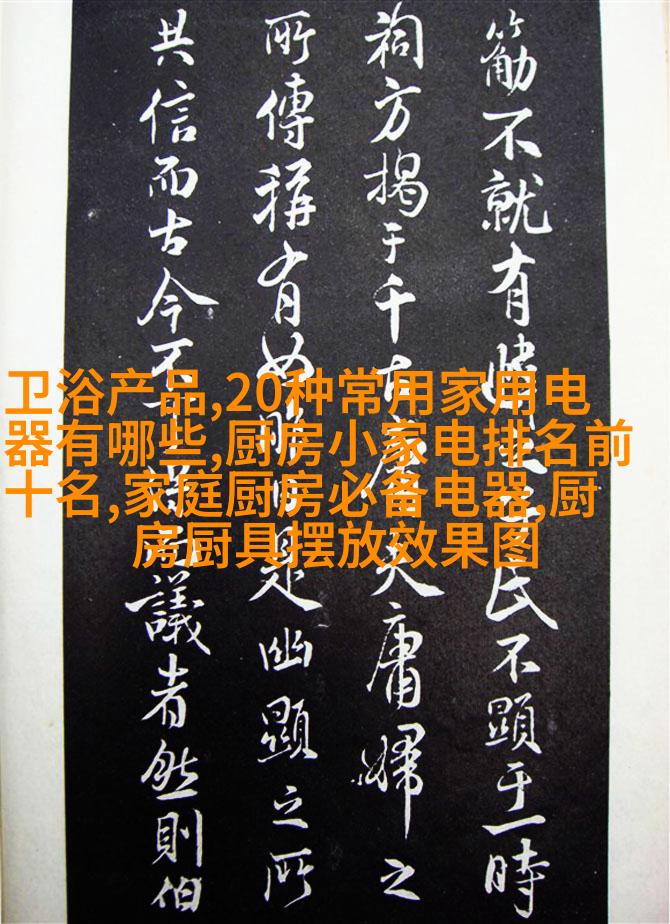 不就有民不顯于一時
祠方揭于千古夫庸婦之
所傳稱有是幽顯之所
共信而古今不議者然則伯
卫浴产品,20种常用家用电
器有哪些,厨房小家电排名前
十名,家庭厨房必备电器,厨
房厨具摆放效果图